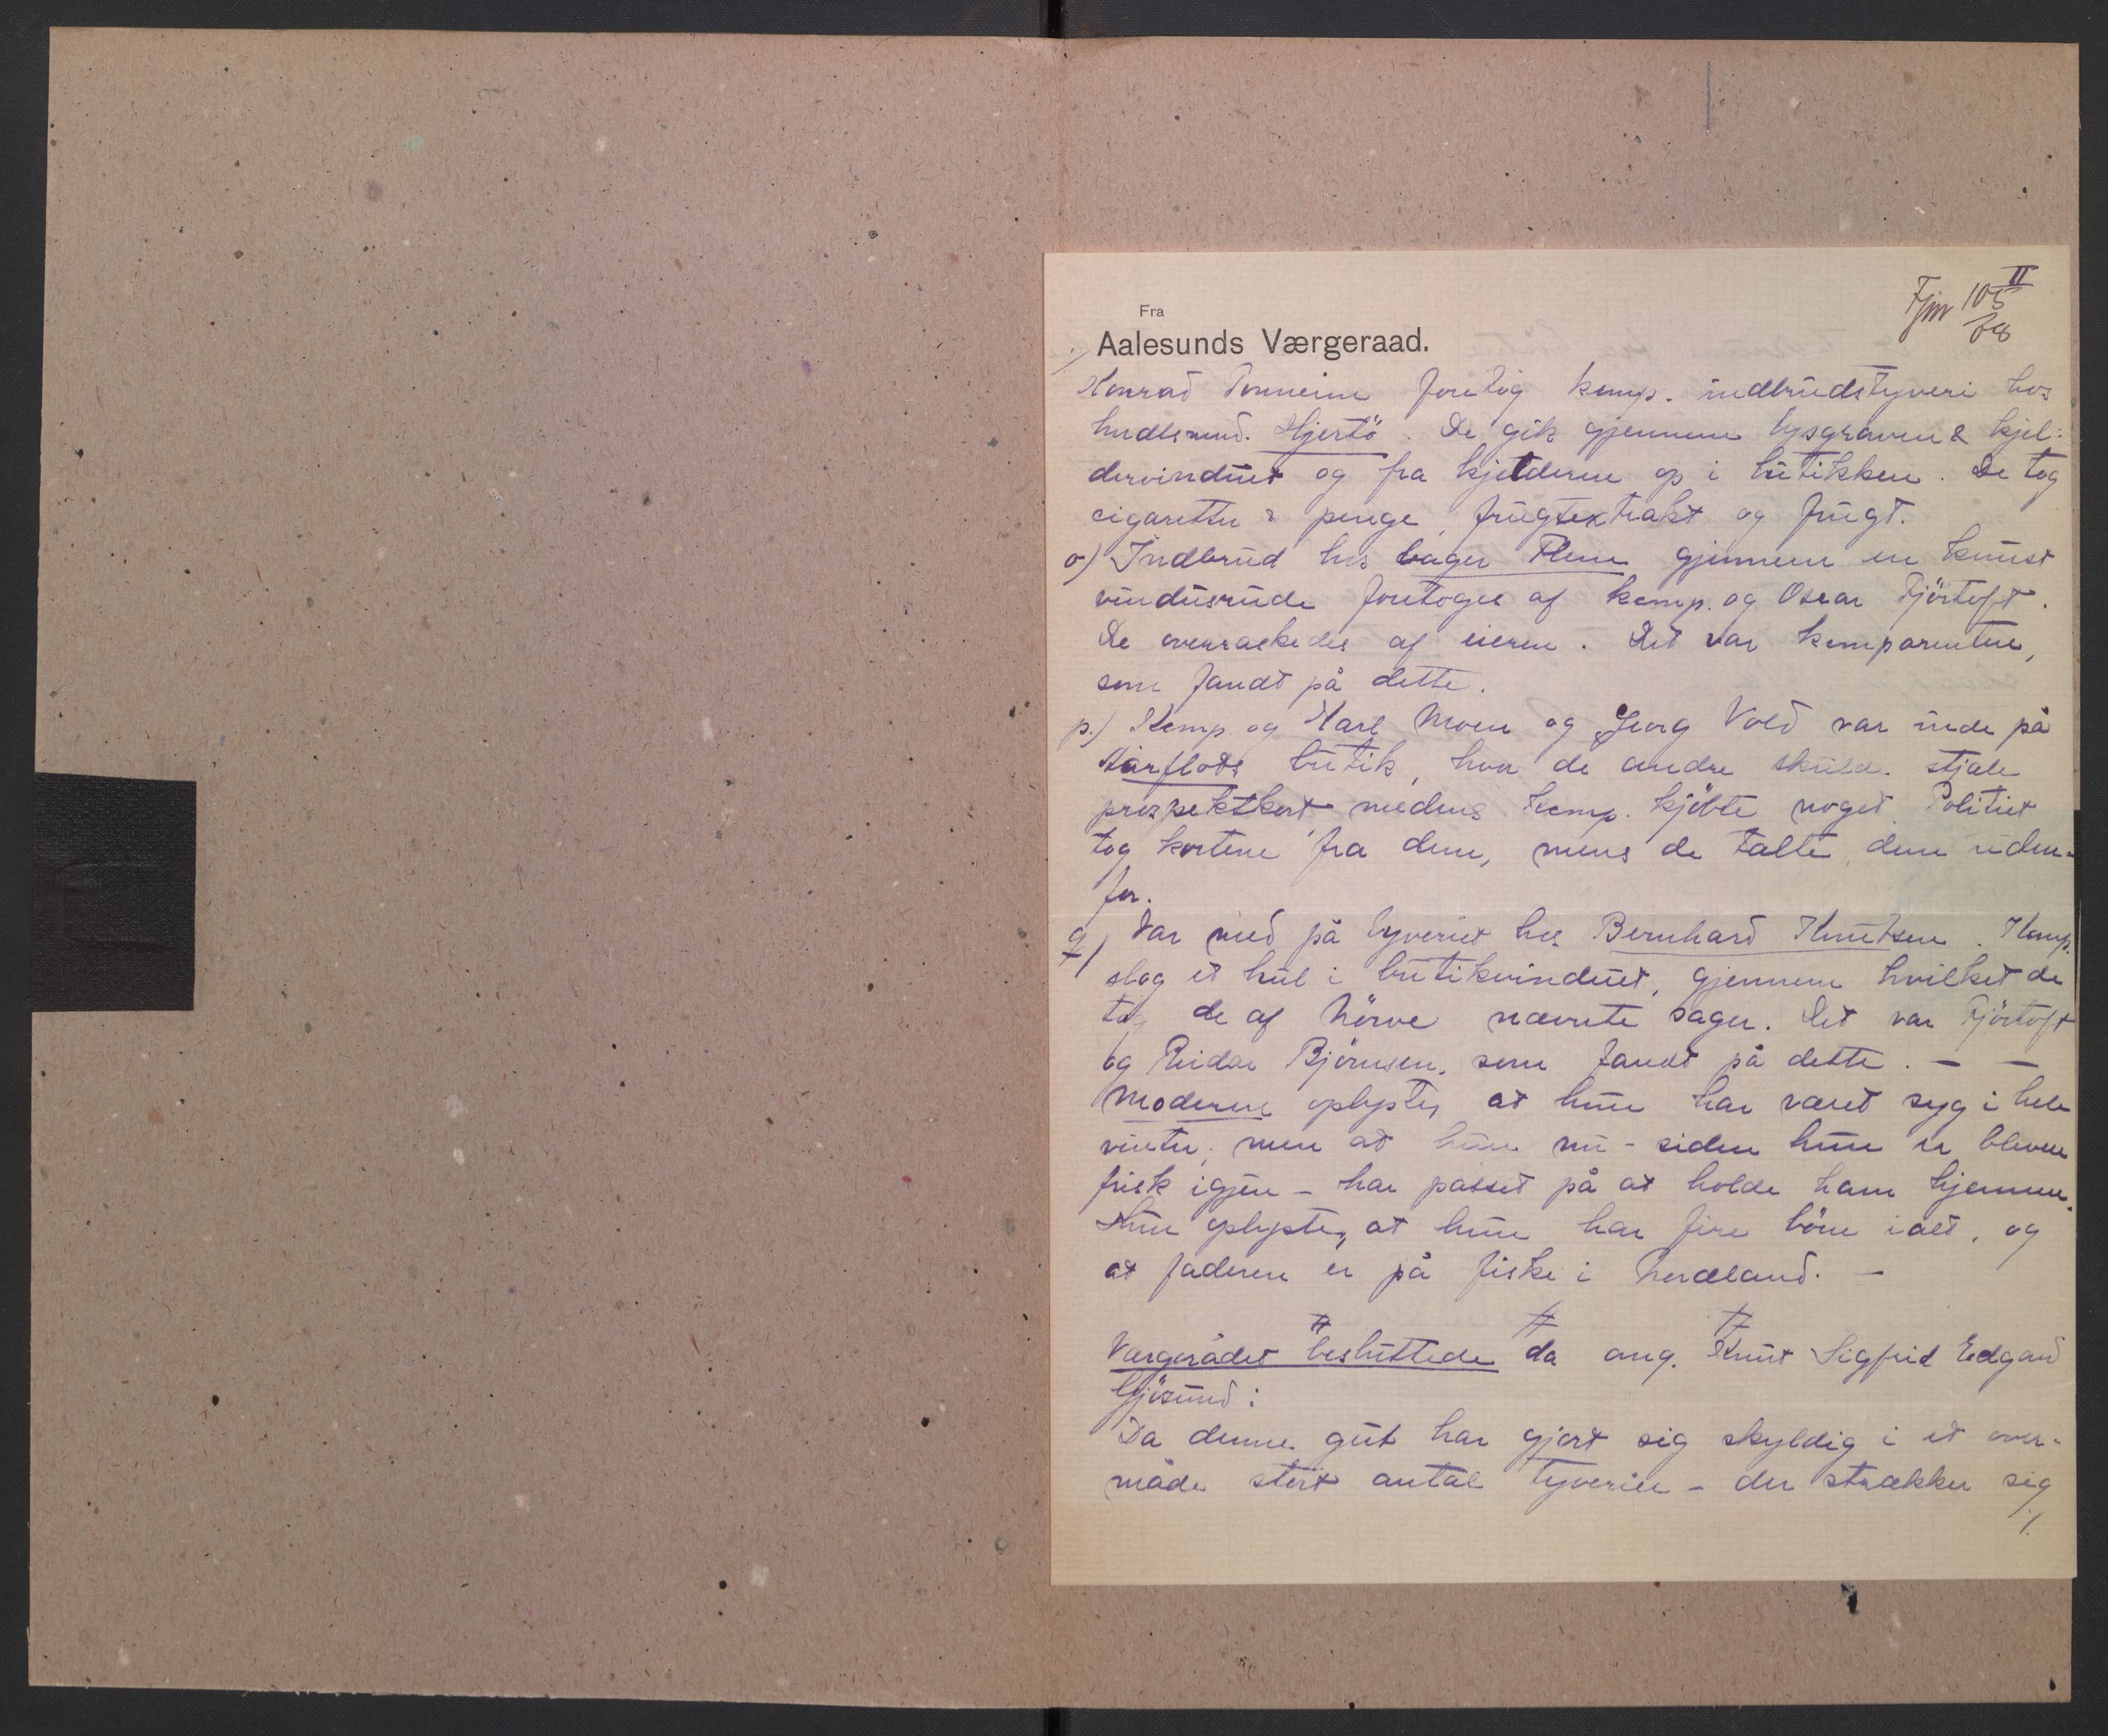 Fra
Aalesunds Værgeraad.
Fjm 105 II
Konrad foretog komp. indbrudstyveri hos
hndlsmd. Hjertö. De gik gjennem lysgraven & kjel-
dervinduet og fra kjelderen op i butikken. De tog
cigaretter & penge, frugtextrakt og frugt.
o) Indbrud hos bager Flem gjennem en knust
vindusrude foretoges af komp. og Oscar Fjörtoft.
De overraskedes af eieren. Det var komparenten,
som fandt på dette.
p.) Komp. og Karl Moen og Georg Vold var inde på
Aarflots butik, hvor de andre skuld. stjæle
prospektkort medens komp. kjöbte noget. Politiet
tog kortene fra dem, mens de talte dem uden-
for.
q) Var med på tyveriet hos Bernhard Knutsen. Komp.
slog et hul i butikvinduet, gjennem hvilket de
tog de af Nörve nævnte sager. Det var Fjörtoft
og Reidar Björnsen, som fandt på dette. — —
Moderen oplyste, at hun har været syg i hele
vinter, men at hun nu - siden hun er bleven
frisk igjen - har passet på at holde ham hjemme.
Hun oplyste, at hun har fire börn ialt, og
at faderen er på fiske i Nordland. —
Værgerådet besluttede da ang. Knut Sigfrid Edgard
Gjösund:
Da denne gut har gjort sig skyldig i et over-
måde stort antal tyverier - der strækker sig
./.